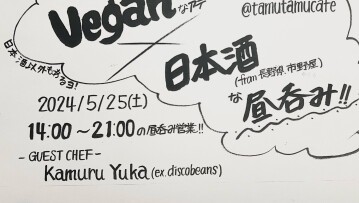 Veganなアテ
@tamutamucafe
日本酒以外もあるヨ!
日本酒
(from 長野県、市野屋)
な昼呑み!!
2024/5/25(土)
14:00~21:00の昼呑み営業!!
- GUEST CHEF -
Kamuru Yuka (ex. discobeans)